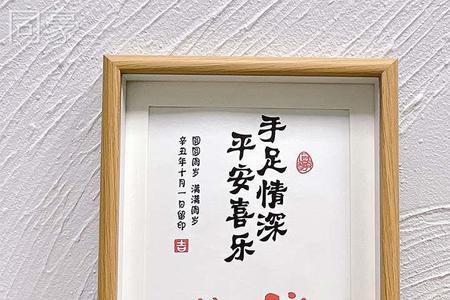 同蒙
手足情深
平安喜乐
圆圆周岁 满满周岁
辛丑年十月一日留印
吉